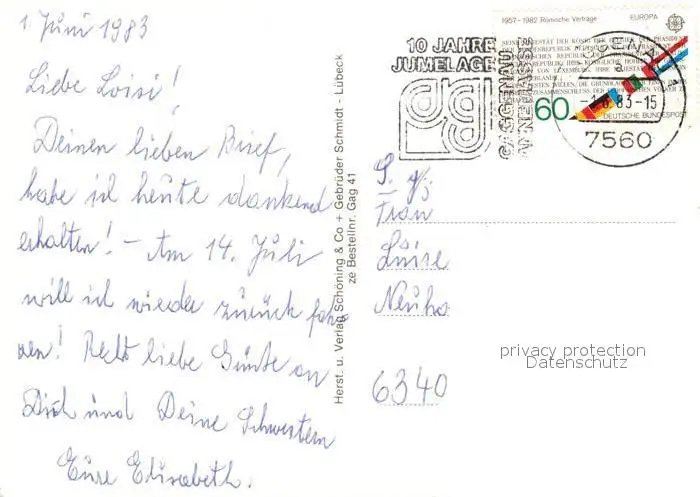 1. Juni 1983
Liebe Loisi!
Deinen lieben Brief,
habe ich heute dankend
erhalten! - Am 14. Juli
will ich wieder zurück fah
ren! Recht liebe Grüße an
Dich und Deine Schwestern
Eure Elisabeth.
Herst. u. Verlag Schöning & Co + Gebrüder Schmidt - Lübeck
ze Bestellnr. Gag 41
10 JAHRE
JUMELAGE
GAGGENAU
ANNEMASSE
1957-1982 Römische Verträge EUROPA
60
DEUTSCHE BUNDESPOST
-1.6.83-15
7560
Frau
Luise
Neuha
6340
privacy protection
Datenschutz